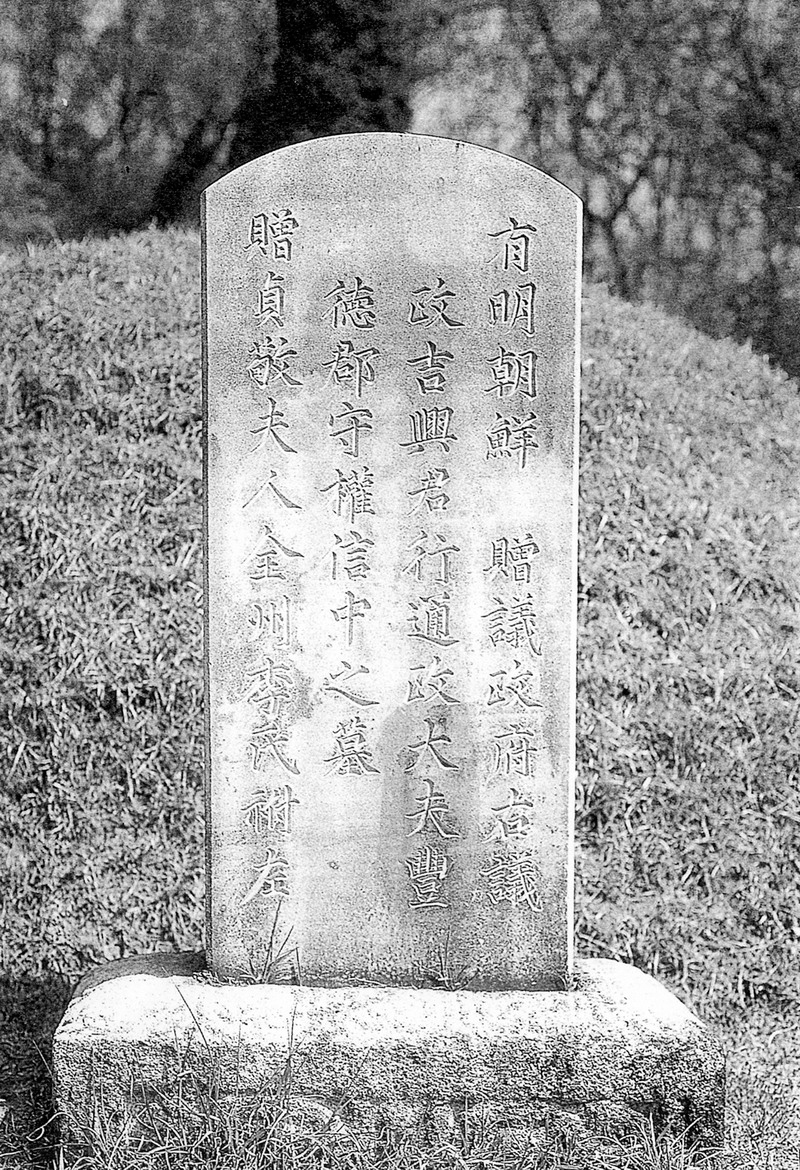 有明朝鮮 贈議政府右議
政吉興君行通政大夫豐
德郡守權信中之墓
贈貞敬夫人全州李氏祔左